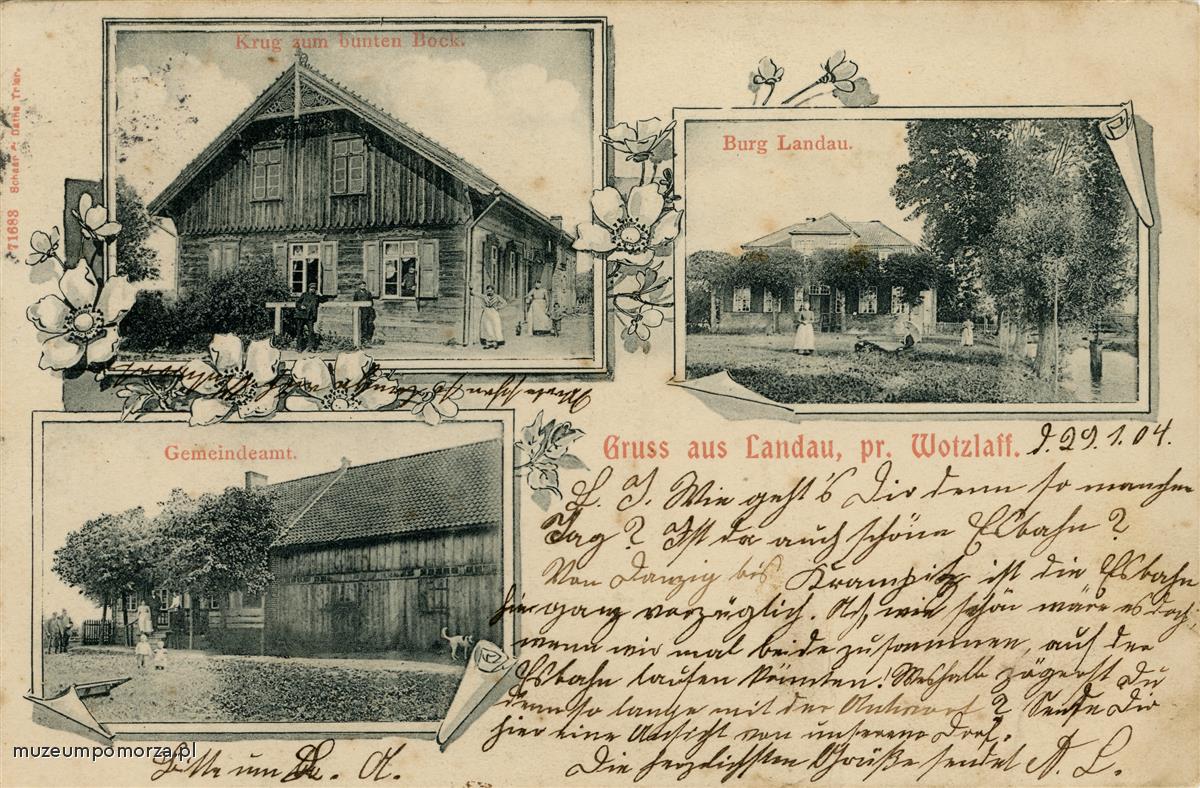 Krug zum bunten Bock.
Burg Landau.
71683 Schaar & Dathe Trier.
Gemeindeamt.
Gruss aus Landau, pr. Wotzlaff.
d. 29.1.04.
L. J. Wie geht's Dir denn so manchen
Tag? Ist da auch schöne Eisbahn?
Von Danzig bis Krampitz ist die Eisbahn
hier ganz vorzüglich. Ach, wie schön wäre es doch,
wenn wir mal beide zusammen, auf der
Eisbahn laufen könnten! Weshalb zögerst Du
denn so lange mit der Antwort? Sende Dir
hier eine Ansicht von unserem Dorf.
Die herzlichsten Grüße sendet A. L.
Bitte um A.
muzeumpomorza.pl